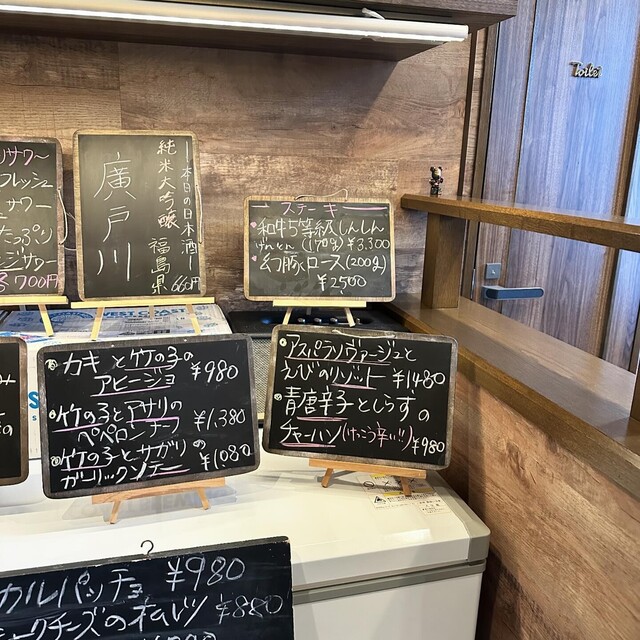 サワー
フレッシュ
サワー
たっぷり
ジサワー
700円
本日の日本酒
純米大吟醸
廣戸川
福島県
660円
ステーキ
和牛5等級しんしん
(170g) ¥3,300
幻豚ロース(200g)
¥2500
カキと竹の子の
アヒージョ ¥980
竹の子とアサリの
ペペロンチーノ ¥1,380
竹の子とサガリの
ガーリックソテー ¥1080
アスパラソヴァージュと
えびのリゾット ¥1480
青唐辛子としらすの
チャーハン(けっこう辛い!!) ¥980
カルパッチョ ¥980
クチーズのオムレツ ¥880
Toilet